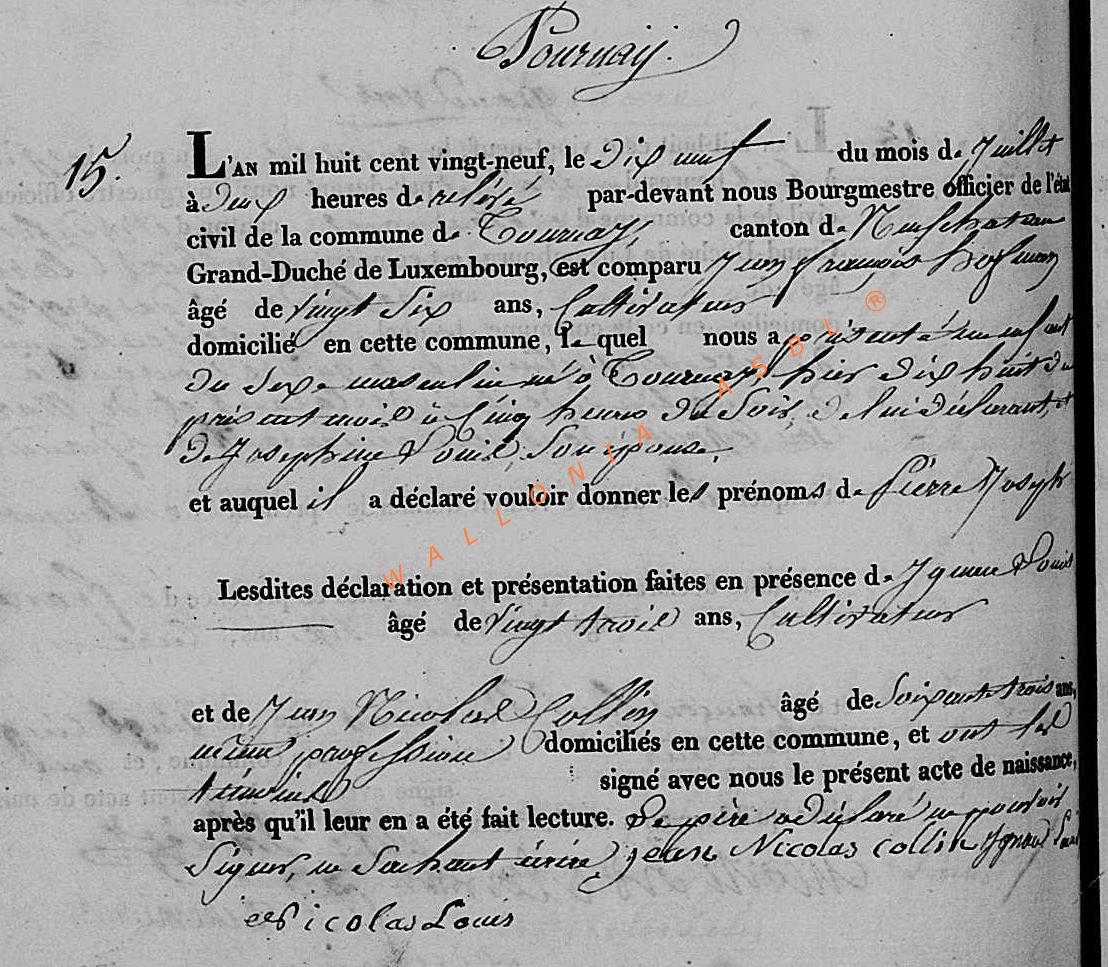 Tournay.
15.
L'AN mil huit cent vingt-neuf, le Dix neuf du mois de Juillet
à Deux heures de relevée par-devant nous Bourgmestre officier de l'état
civil de la commune de Tournay, canton de Neufchateau
Grand-Duché de Luxembourg, est comparu Jean François
âgé de Vingt Six ans, Cultivateur
domicilié en cette commune, le quel nous a présenté un enfant
du Sexe masculin né à Tournay, hier dix huit du
présent mois à Cinq heures du Soir, de lui déclarant, et
de Josephine Louis, Son épouse,
et auquel il a déclaré vouloir donner les prénoms de Pierre Joseph
Lesdites déclaration et présentation faites en présence d'Ignace Louis
âgé de Vingt trois ans, Cultivateur
et de Jean Nicolas Collin âgé de Soixante trois ans,
même profession domiciliés en cette commune, et ont les
témoins signé avec nous le présent acte de naissance,
après qu'il leur en a été fait lecture. Le père a déclaré ne pouvoir
Signer, ne Sachant écrire, jean Nicolas collin Ignace Louis
Nicolas Louis
WALLONIA ASBL ®